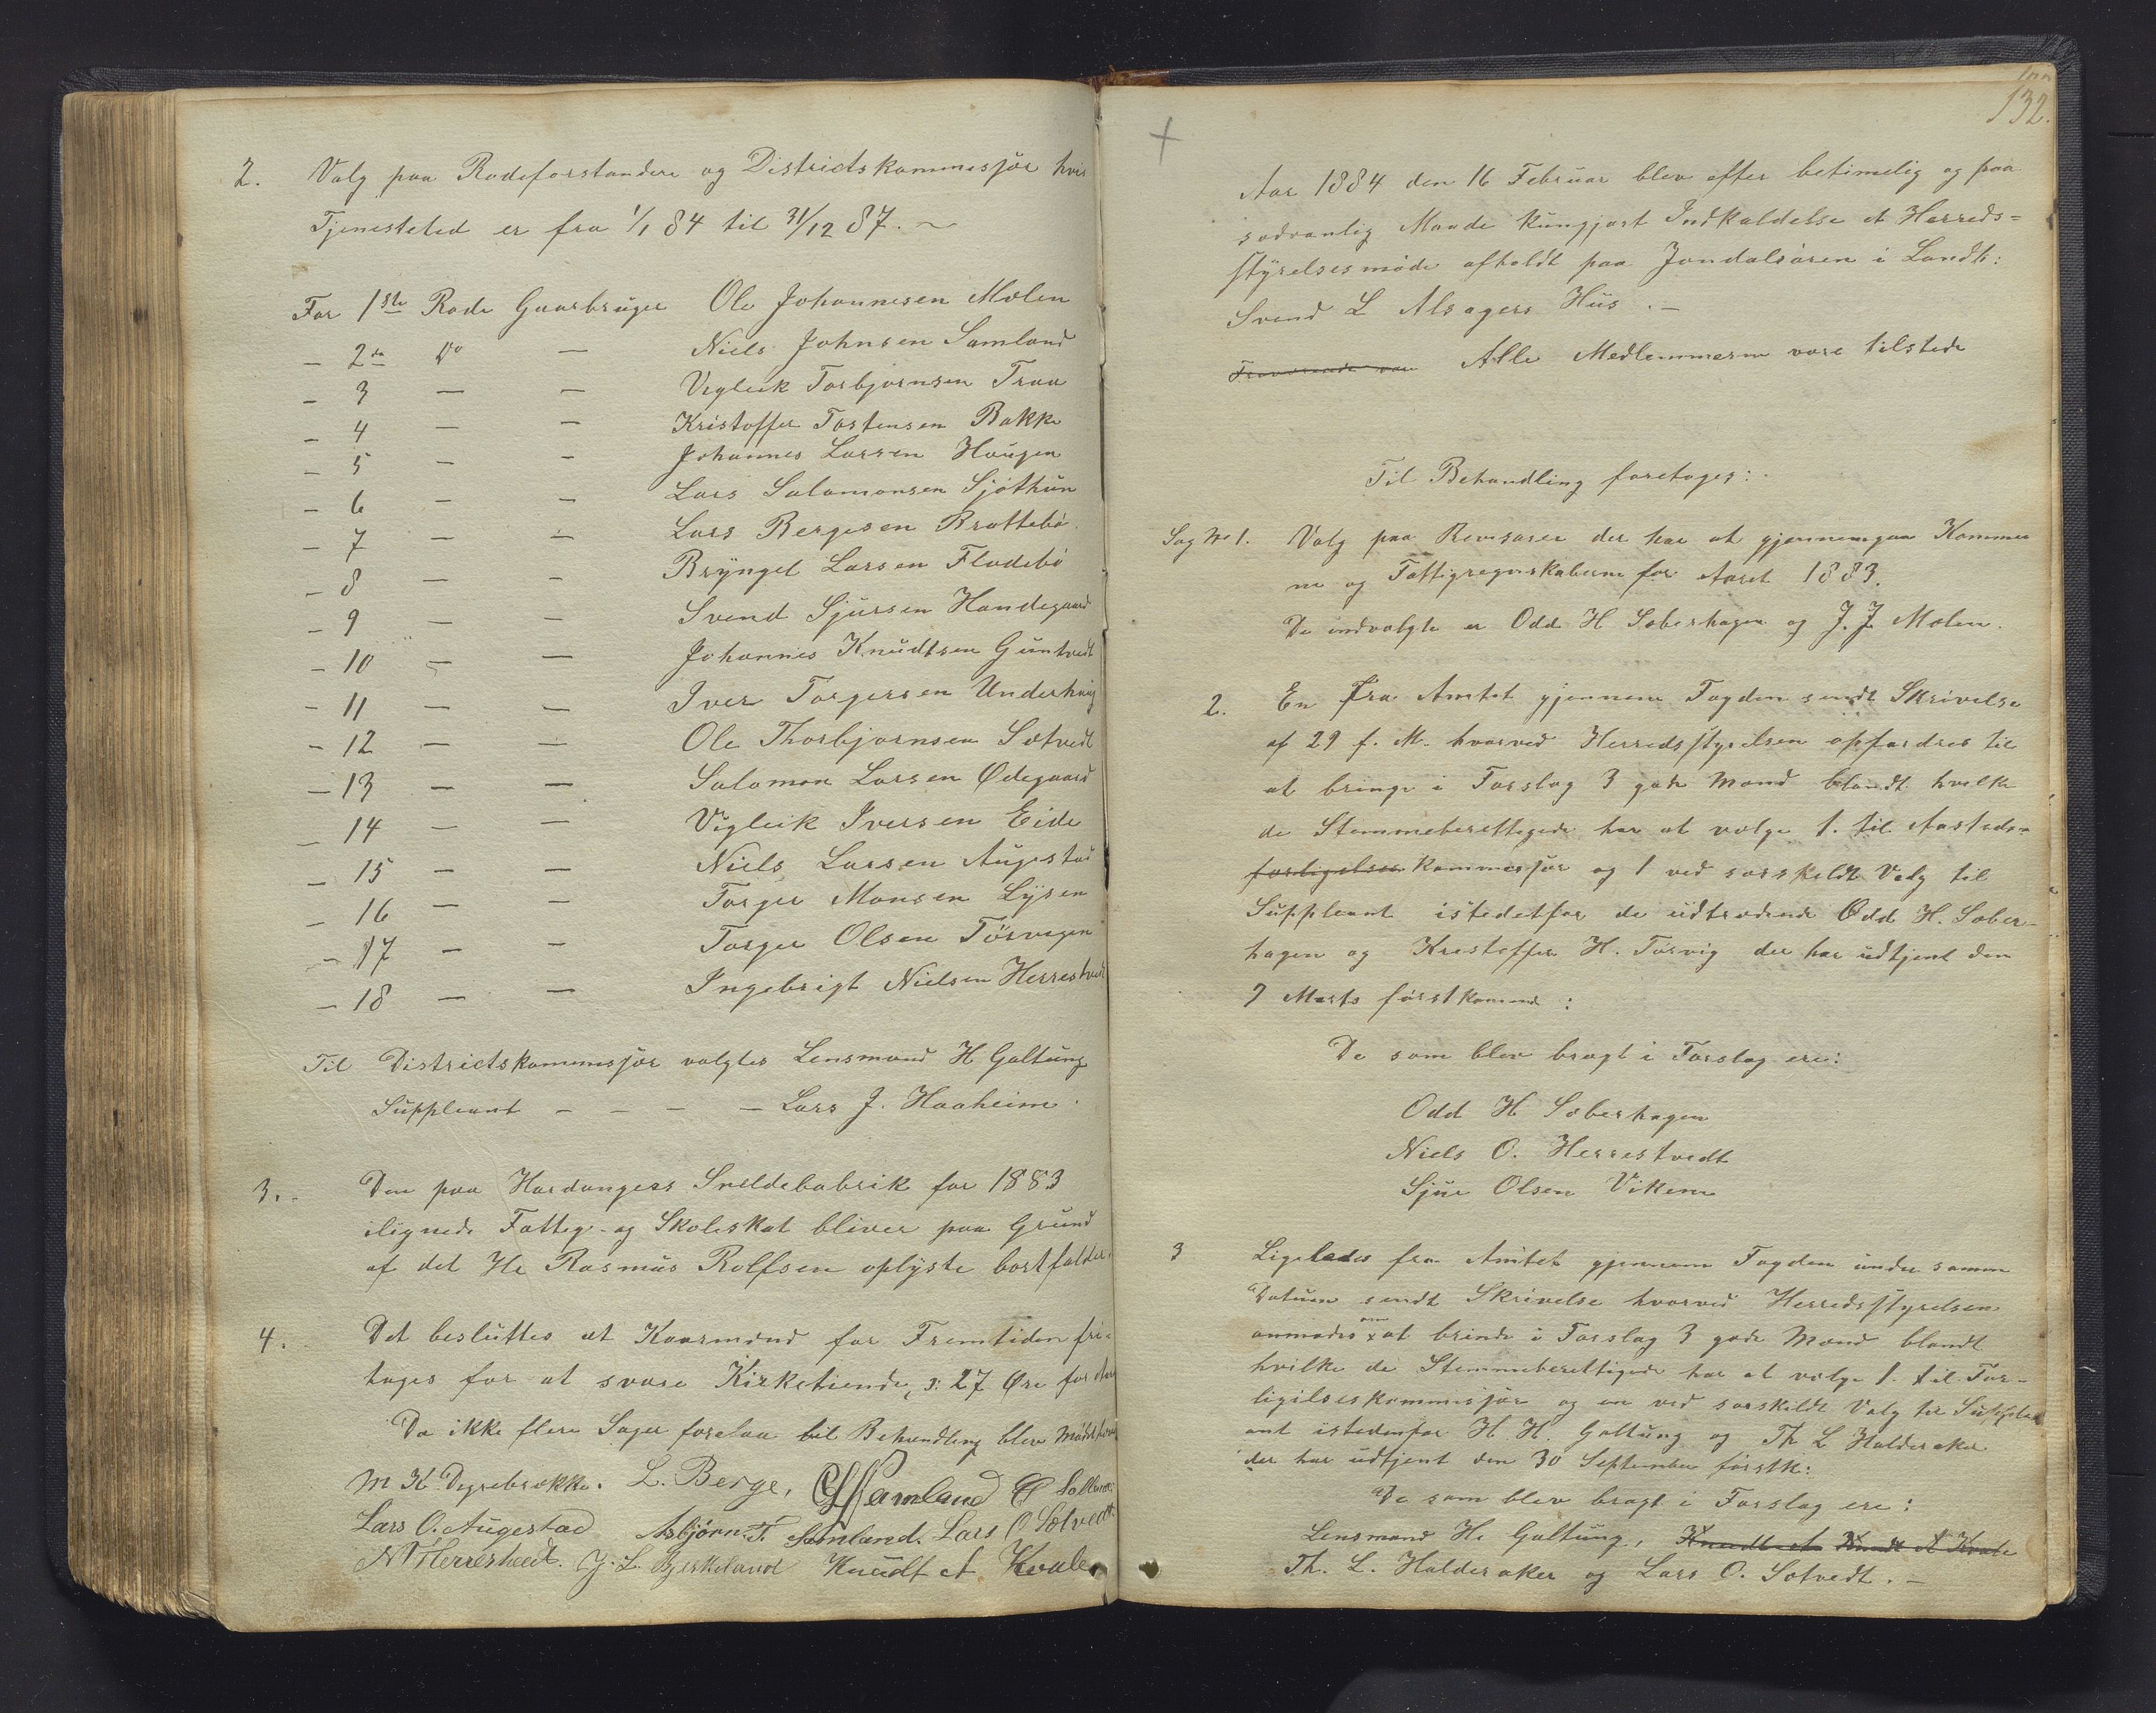 2. Valg paa Rodeforstandere og Districtskommesjør hvis
Tjenestetid er fra 1/1 84 til 31/12 87. ~
For 1ste Rode Gaarbruger Ole Johannesen Mølen
- 2den Do — Niels Johnsen Samland
- 3 — — Vigleik Torbjørnsen Traa
- 4 — — Kristoffer Tostensen Bakke
- 5 — - Johannes Larsen Haugen
- 6 - - Lars Salamonsen Sjøthun
- 7 - - Lars Bergesen Brattebø
- 8 — - Bryngel Larsen Fladebø
- 9 — - Svend Sjursen Handegaard
- 10 - — Johannes Knudtsen Guntvedt
- 11 — — Iver Torgersen Underhaug
- 12 — — Ole Thorbjørnsen Sætvedt
- 13 - — Salamon Larsen Ødegaard
- 14 - — Vigleik Iversen Eide
- 15 - — Niels Larsen Augestad
- 16 - - Torger Monsen Lysen
- 17 - - Torger Olsen Tørvegen
- 18 — — Ingebrigt Nielsen Herrestvedt
Til Districtskommesjør valgtes Lensmand H Galtung
Suppleant - - - - Lars J. Haaheim.
3. Den paa Hardangers Snildefabrik for 1883
ilignede Fattig- og Skoleskat bliver paa Grund
af det Hr Rasmus Rolfsen oplyste bortfalder.
4. Det besluttes at Kaarmænd for Fremtiden fri-
tages for at svare Kirketiende, ɔ: 27 Øre for
Da ikke flere Sager forelaa til Behandling blev Mødet
M K Dyrebrekke. L. Berge, Samland
Lars O. Augestad Asbjørn T. Samland. Lars O Sætvedt.
N Herrestvedt. J. L. Bjerkeland Knudt A Kvale
132.
Aar 1884 den 16 Februar blev efter betimelig og paa
sædvanlig Maade kungjort Indkaldelse et Herreds=
styrelsesmøde afholdt paa Jondalsøren i Landh:
Svend L Alsagers Hus. —
Alle Medlemmerne vare tilstede
Til Behandling foretages:
Sag No 1. Valg paa Revisorer der har at gjennemgaa Kommu
ne og Fattigregnskaberne for Aaret 1883.
De indvalgte er Odd H Sæberhagen og J. J. Mølen.
2. En fra Amtet gjennem Fogden sendt Skrivelse
af 29 f. M. hvorved Herredsstyrelsen opfordres til
at bringe i Forslag 3 gode Mænd blandt hvilke
de Stemmeberettigede har at vælge 1. til Aasteds-
forligelses kommesjør og 1 ved særskildt Valg til
Suppleant istedetfor de udtrædende Odd H. Sæber-
hagen og Kristoffer H. Tørvig der har udtjent den
7 Marts førstkommende:
De som blev bragt i Forslag ere:
Odd H Sæberhagen
Niels O. Herrestvedt
Sjur Olsen Viken
3 Ligeledes fra Amtet gjennem Fogden under samme
Datum sendt Skrivelse hvorved Herredsstyrelsen
anmodes om at bringe i Forslag 3 gode Mænd blandt
hvilke de Stemmeberettigede har at vælge 1. til For-
ligelseskommisjør og en ved særskildt Valg til Supple
ant istedenfor H. H. Galtung og Th L Halderaker
der har udtjent den 30 September førstk:
De som blev bragt i Forslag ere:
Lensmand H. Galtung, Knudt A Knudt A Kvale
Th. L. Halderaker og Lars O. Sætvedt. —